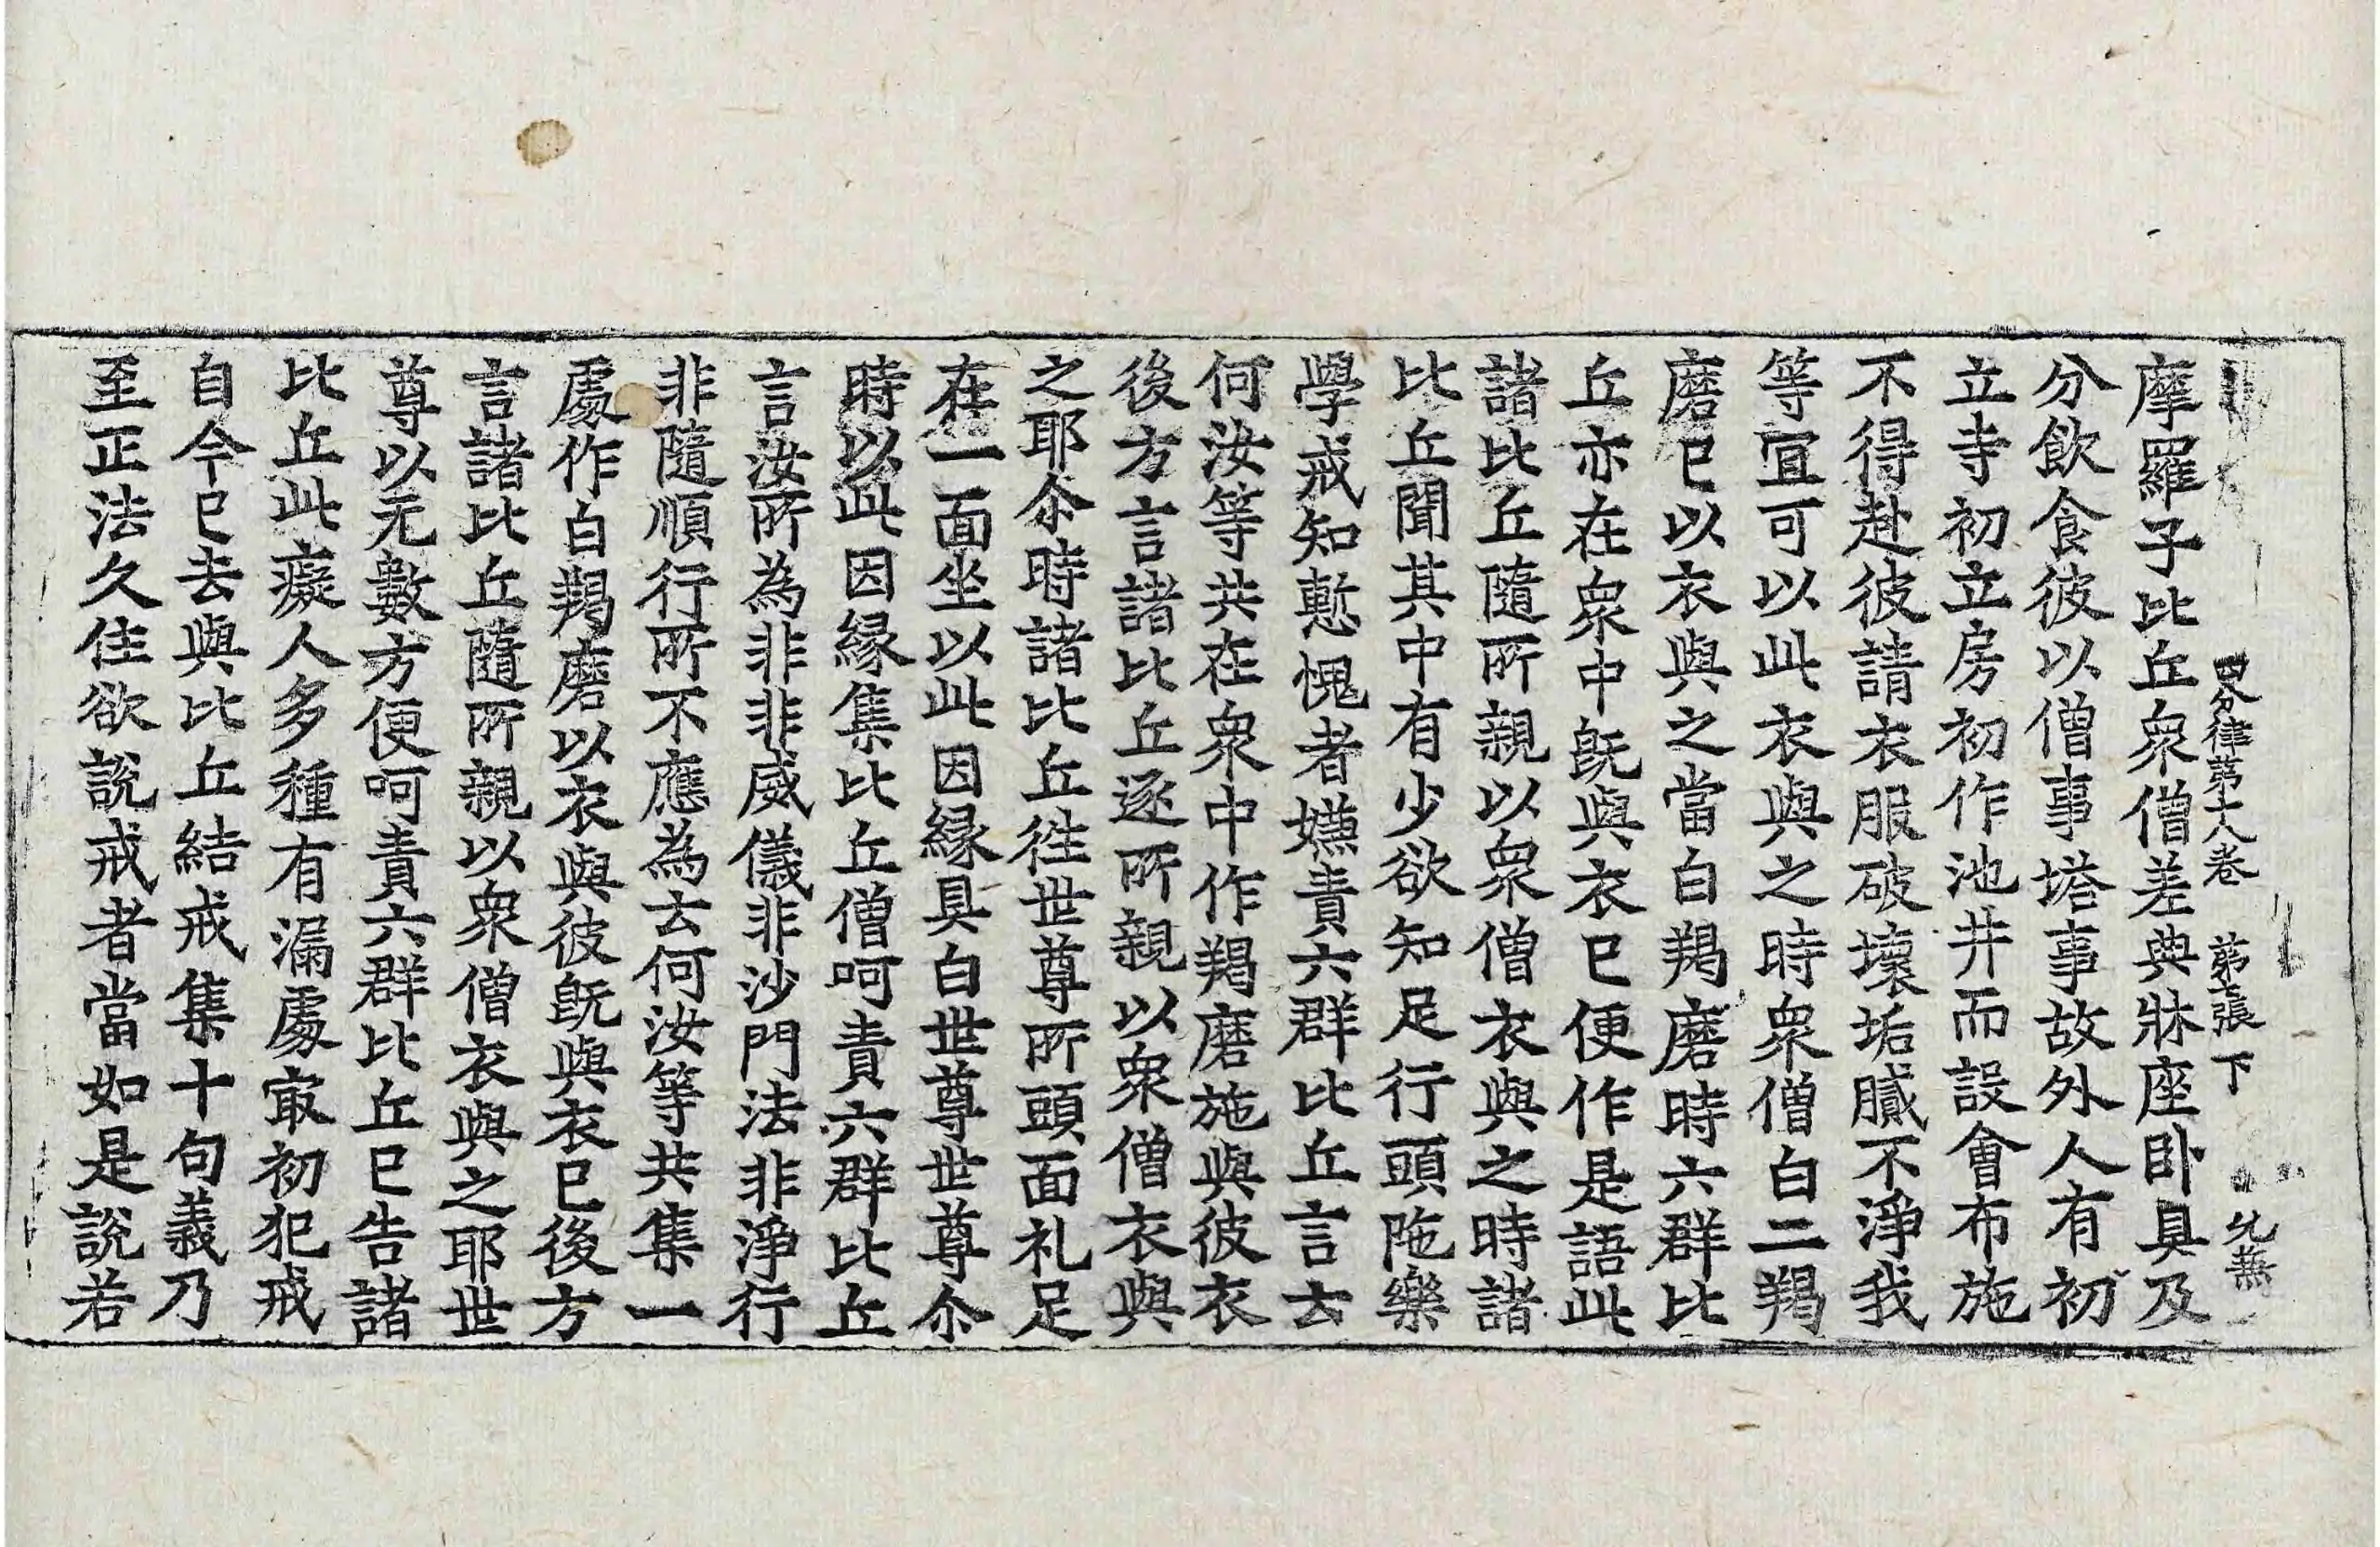 四分律第十八卷 第七張 下
摩羅子比丘衆僧差典牀座卧具及
分飲食彼以僧事塔事故外人有初
立寺初立房初作池井而設會布施
不得赴彼請衣服破壞垢膩不淨我
等宜可以此衣與之時衆僧白二羯
磨已以衣與之當白羯磨時六群比
丘亦在衆中旣與衣已便作是語此
諸比丘隨所親以衆僧衣與之時諸
比丘聞其中有少欲知足行頭陁樂
學戒知慙愧者嫌責六群比丘言去
何汝等共在衆中作羯磨施與彼衣
後方言諸比丘逐所親以衆僧衣與
之耶尒時諸比丘徃世尊所頭面礼足
在一面坐以此因緣具白世尊世尊尒
時以此因緣集比丘僧呵責六群比丘
言汝所為非非威儀非沙門法非淨行
非隨順行所不應為去何汝等共集一
處作白羯磨以衣與彼旣與衣已後方
言諸比丘隨所親以衆僧衣與之耶世
尊以无數方便呵責六群比丘已告諸
比丘此癡人多種有漏處㝡初犯戒
自今已去與比丘結戒集十句義乃
至正法久住欲說戒者當如是說若